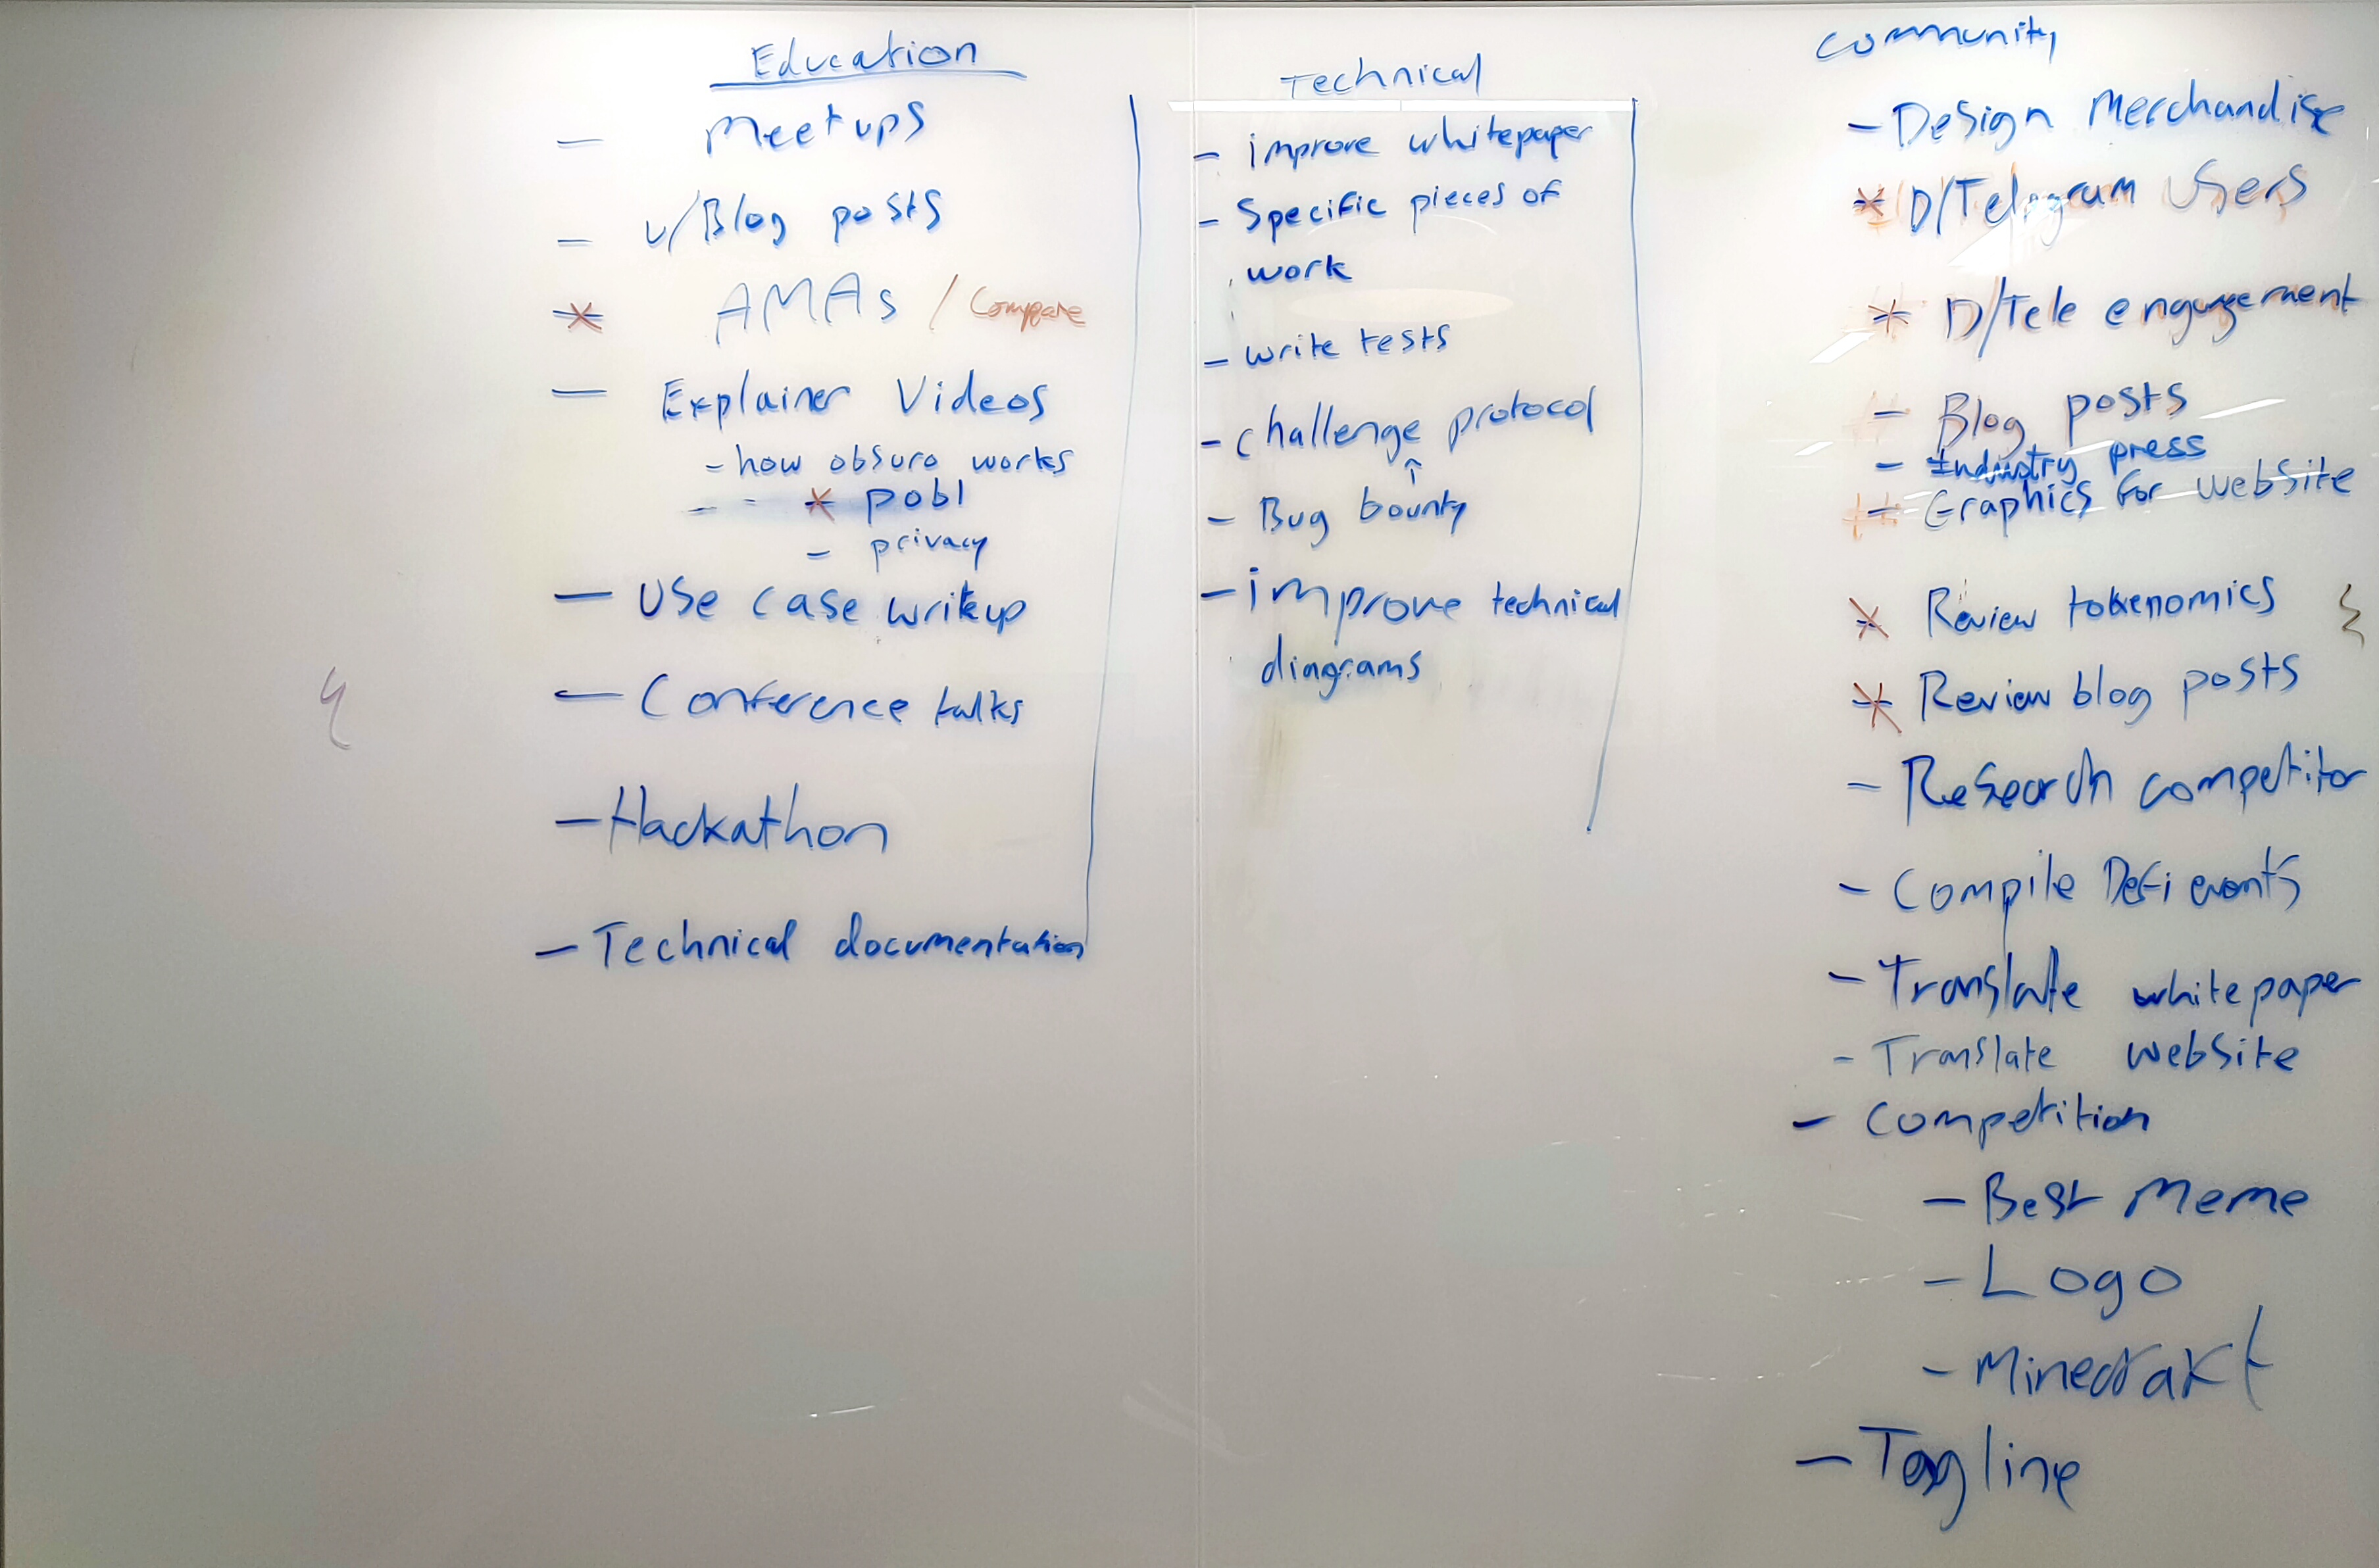 Education
- Meetups
- v/Blog posts
* AMAs / Compere
- Explainer Videos
- how obsuro works
- - * pobl
- privacy
- Use case writeup
- Conference talks
- Hackathon
- Technical documentation
Technical
- improve whitepaper
- Specific pieces of
work
- write tests
- challenge protocol
- Bug bounty
- improve technical
diagrams
Community
- Design Merchandise
* D/Telegram Users
* D/Tele engagement
- Blog posts
- Industry press
- Graphics for website
* Review tokenomics
* Review blog posts
- Research competitor
- Compile Defi events
- Translate whitepaper
- Translate website
- Competition
- Best Meme
- Logo
- Minecraft
- Tagline